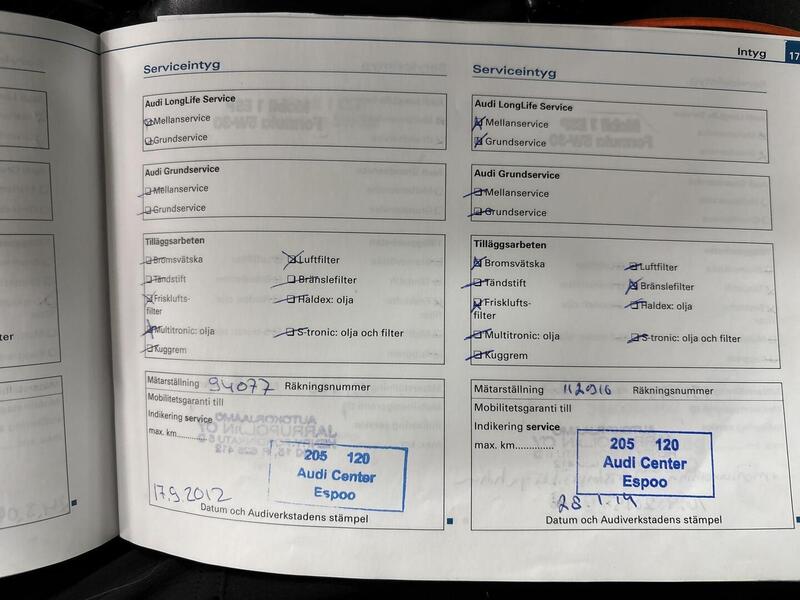 Intyg 17
Serviceintyg
Audi LongLife Service
Mellanservice
Grundservice
Audi Grundservice
Mellanservice
Grundservice
Tilläggsarbeten
Bromsvätska
Luftfilter
Tändstift
Bränslefilter
Frisklufts-
filter
Haldex: olja
Multitronic: olja
S-tronic: olja och filter
Kuggrem
Mätarställning 94077 Räkningsnummer
Mobilitetsgaranti till
Indikering service
max. km..............
205 120
Audi Center
Espoo
17.9.2012
Datum och Audiverkstadens stämpel
Serviceintyg
Audi LongLife Service
Mellanservice
Grundservice
Audi Grundservice
Mellanservice
Grundservice
Tilläggsarbeten
Bromsvätska
Luftfilter
Tändstift
Bränslefilter
Frisklufts-
filter
Haldex: olja
Multitronic: olja
S-tronic: olja och filter
Kuggrem
Mätarställning 112916 Räkningsnummer
Mobilitetsgaranti till
Indikering service
max. km..............
205 120
Audi Center
Espoo
28.1.14
Datum och Audiverkstadens stämpel